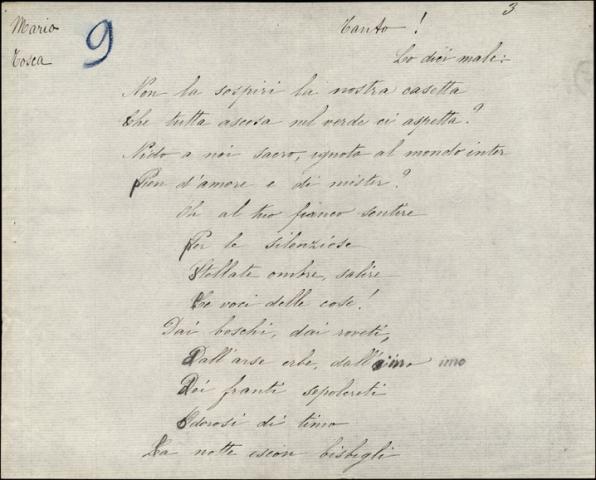 3
Mario
9
Tanto!
Tosca
Lo dici male:
Non la sospiri la nostra casetta
Che tutta ascosa nel verde ci aspetta?
Nido a noi sacro, ignoto al mondo inter
Pien d'amore e di mister?
Oh al tuo fianco sentire
Per le silenziose
Stellate ombre, salire
Le voci delle cose!
Dai boschi, dai roveti,
Dall'arse erbe, dall'imo imo
Dei franti sepolcreti
Odorosi di timo
La notte escon bisbigli